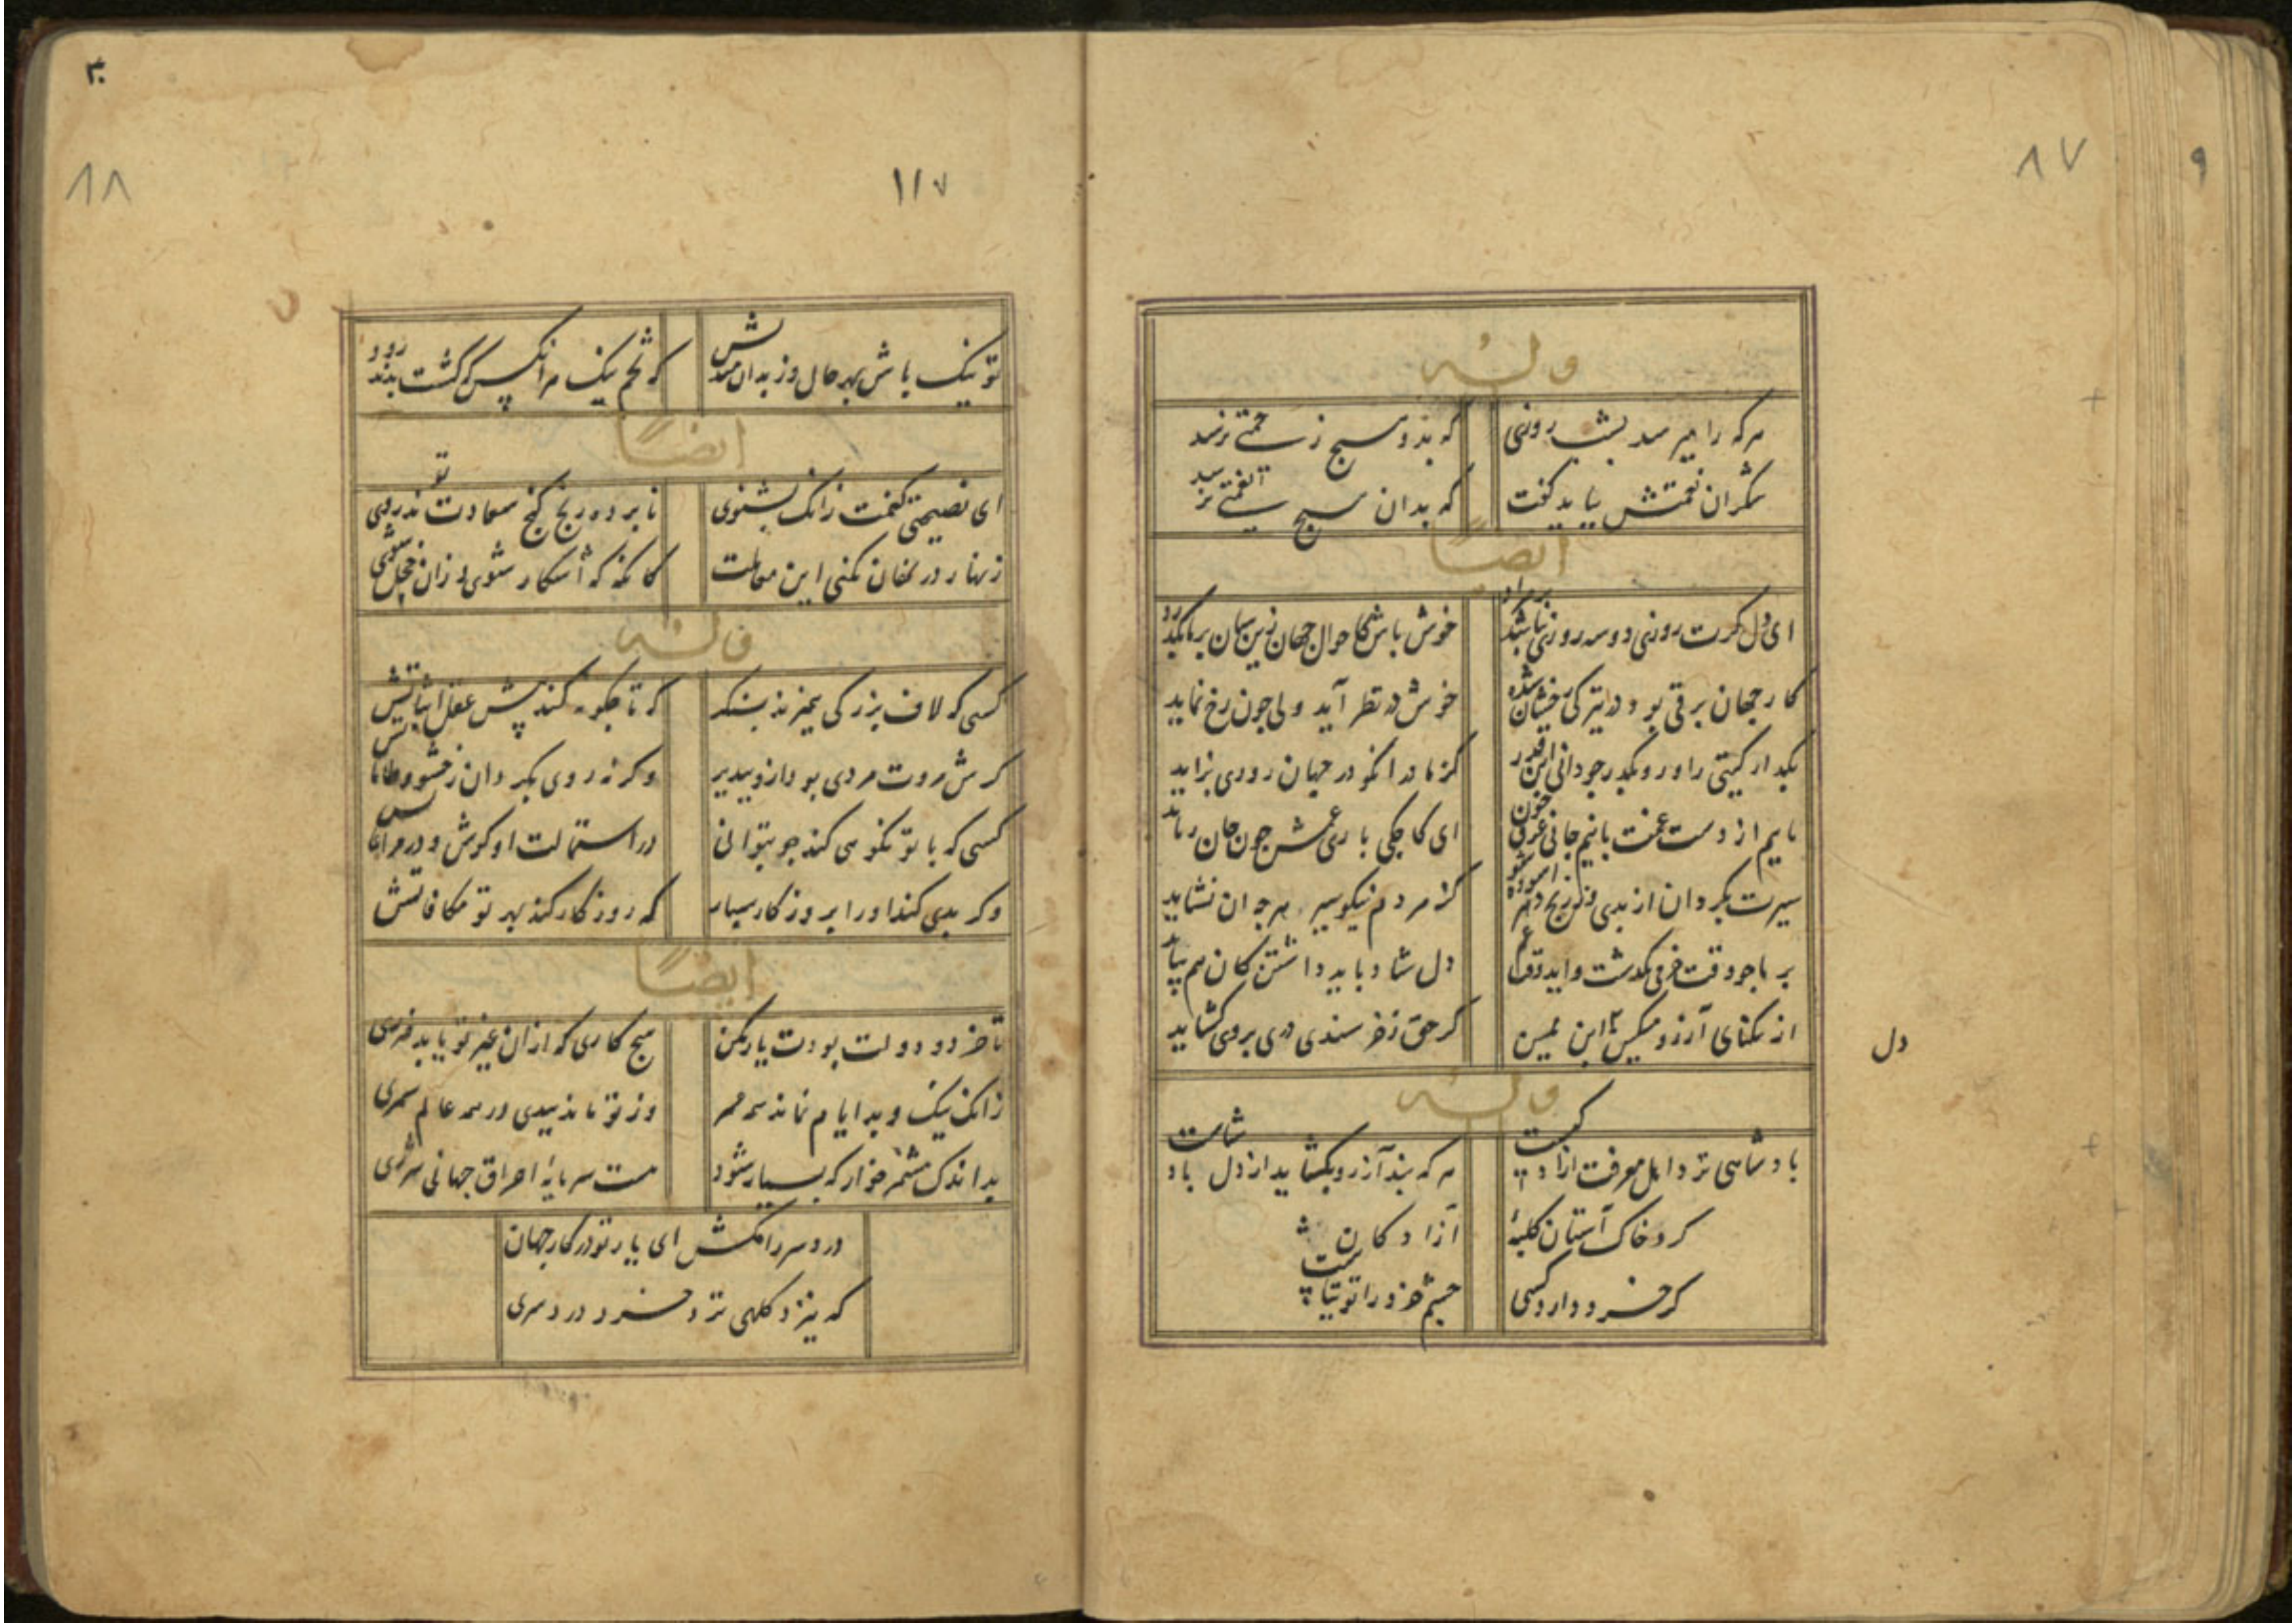 ۸۷
۹
وله
هرکه را میرسد بشب روزی
که بدو هیچ زحمتی نرسد
شکران نعمتش بباید گفت
که بدان هیچ نعمتی نرسد
ایضاً
ای دل گرت روزی دو سه روزی نباشد بر مراد
خوش باش کاحوال جهان زین سان برمانگذرد
کار جهان برقی بود در تیرکی خشان شده
خوش در نظر آید ولی چون رخ نماید
بگذار گیتی را و رو بگذر چو دانی این قدر
کز مادر انکو در جهان روزی بزاید
مایم از دست غمت با نیم جانی غرق خون
ای کاجکی باری غمش چون جان رباید
سیرت بگردان از بدی وز رنج دهر آسوده شو
کز مردم نیکو سیر هرچه آن نشاید
بر ما چو وقت خرمی بگذشت و آید وقت غم
دل شاد باید داشتن کان هم بپاید
از تنکنای آرزو ابن یمین
گر حق ز خرسندی دری بر وی گشاید
دل
وله
بادشاهی نزد اهل معرفت آزادگیست
هرکه بند آرزو بگشاید از دل بادشاست
گرد خاک آستان کلبهٔ
آزادکان
گر خرد دارد کسی
چشم خرد را توتیاست
۳۰
۸۸
۱۱۷
تو نیک باش بهر حال و ز بدان مندیش
که تخم نیک هر آنکس که کشت بد ندرود
ایضاً
ای نصیحتی کنمت زانک بشنوی
نابرده رنج گنج سعادت تو ندروی
زنهار در نهان نکنی این معاملت
کانکه که آشکار شوی زان خجل شوی
وله
کسی که لاف بزرگی همیزند بنگر
که تا چگونه کند پیش عقل اثباتش
گرش مروت مردی بود ازو بپذیر
وگرنه روی بگردان ز خشو و طاماتش
کسی که با تو نکویی کند چو بتوانی
در استمالت او کوش و در مراعاتش
وگر بدی کند او را بروزگار سپار
که روزگار کند بهر تو مکافاتش
ایضاً
تا خرد و دولت بودت یار مکن
هیچ کاری که ازان غیر تو یابد ضرری
زانک نیک و بد ایام نماند همه عمر
وز تو ماند بدی در همه عالم سمری
بد اندک مشمر خوار که بسیار شود
هست سرمایهٔ احراق جهانی شرری
درد سر را مکش ای یار تو در کار جهان
که نیرزد کلهی نزد خرد درد سری